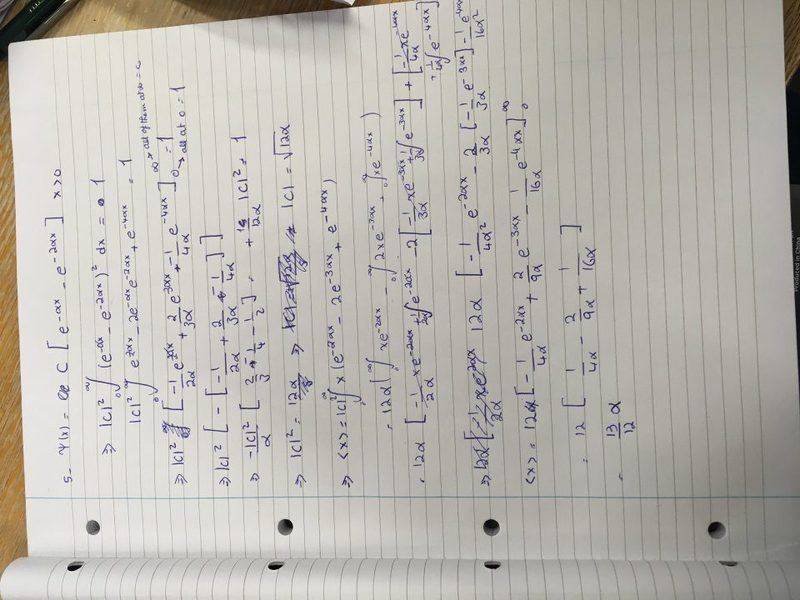 5- Ψ(x) = C [ e^-αx - e^-2αx ] x>0
⇒ |C|² ₀∫^∞ (e^-αx - e^-2αx)² dx = 1
|C|² ₀∫^∞ e^-2αx - 2e^-αx e^-2αx + e^-4αx = 1
⇒ |C|² [ -1/2α e^-2αx + 2/3α e^-3αx + -1/4α e^-4αx ]₀^∞ = 1 ∞ → all of them at ∞ = 0 → all at 0 = 1
⇒ |C|² [ - [ -1/2α + 2/3α - 1/4α ] ]
⇒ -|C|²/α [ 2/3 - 1/4 - 1/2 ] = + 1/12α |C|² = 1
⇒ |C|² = 12α ⇒ |C| = √12α
⇒ <x> = |C|² ₀∫^∞ x (e^-2αx - 2e^-3αx + e^-4αx)
= 12α ( ₀∫^∞ xe^-2αx - ₀∫^∞ 2xe^-3αx + ₀∫^∞ xe^-4αx )
= 12α [ -1/2α xe^-2αx + 1/2α ∫ e^-2αx - 2 [ -1/3α xe^-3αx + 1/3α ∫ e^-3αx ] + [ -1/4α xe^-4αx + 1/4α ∫ e^-4αx ]
⇒ 12α [ -1/4α² e^-2αx - 2/3α [ -1/3α e^-3αx ] - 1/16α² e^-4αx
<x> = 12α [ -1/4α e^-2αx + 2/9α e^-3αx - 1/16α e^-4αx ]₀^∞
= 12 [ 1/4α - 2/9α + 1/16α ]
= 13/12 α